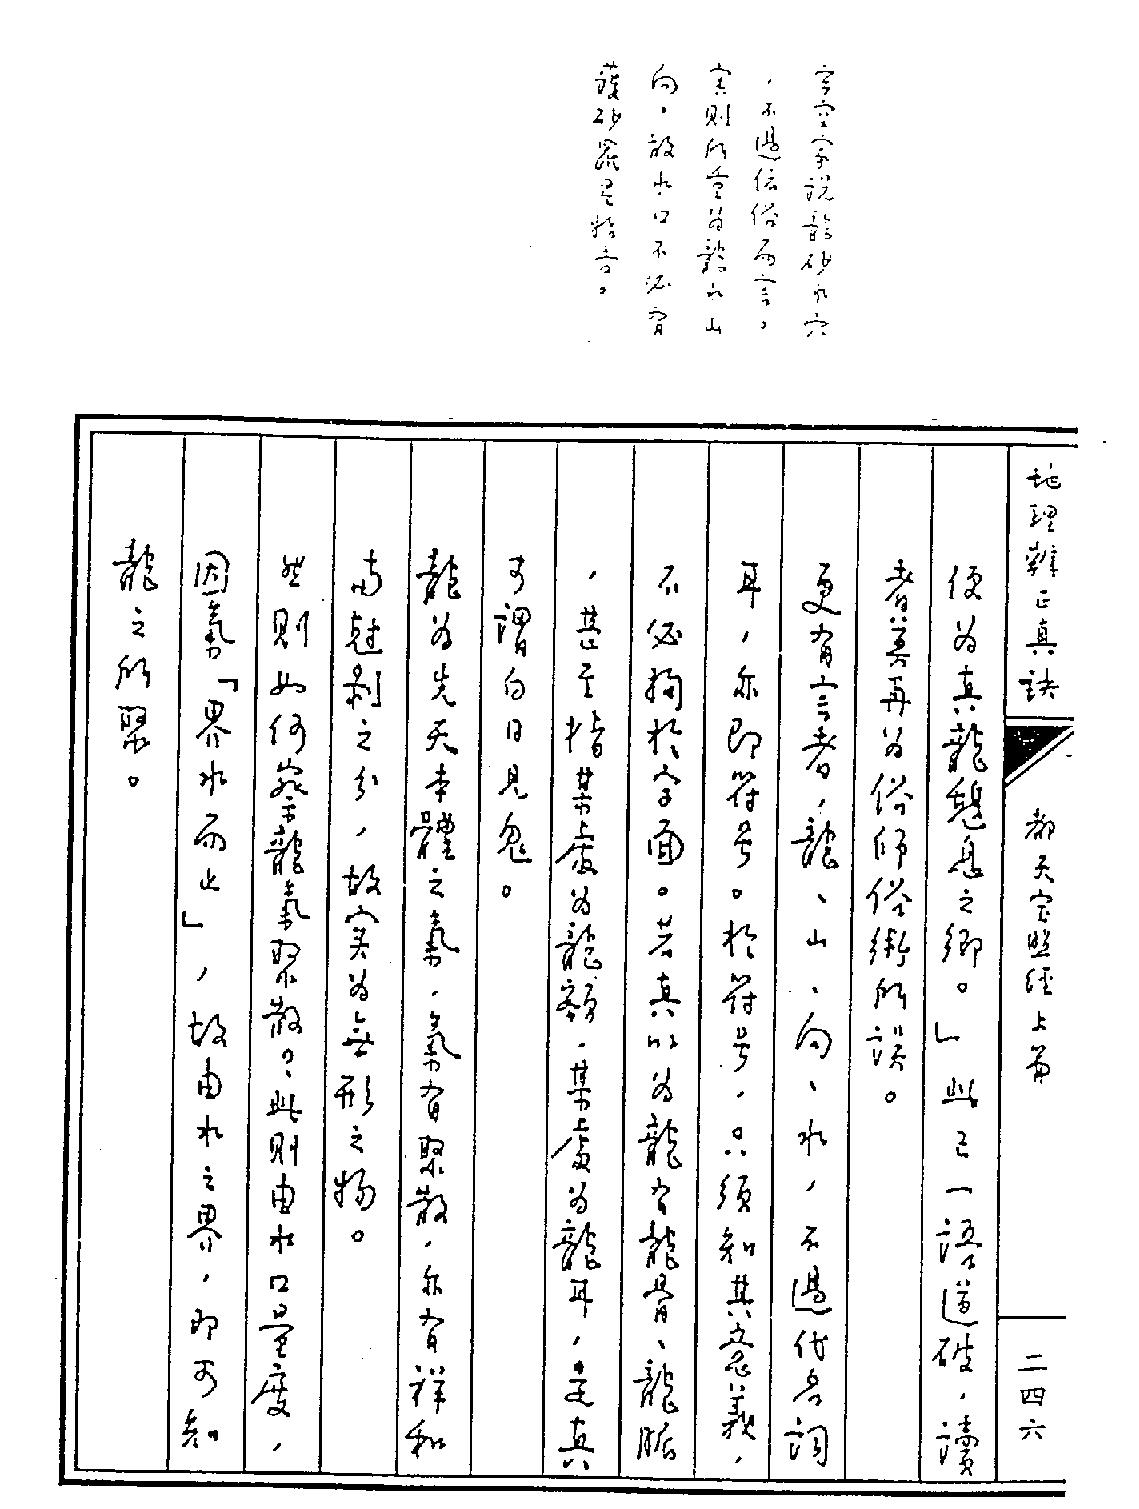 玄空家說龍砂水穴
，不過依俗而言。
實則所重為龍水山
向。故水口不必有
護砂羅星始吉。
地理辨正真訣
都天寶照經上篇
二四六
便為真龍憩息之鄉。」此已一語道破，讀
者莫再為俗師俗術所誤。
更有言者，龍、山、向、水，不過代名詞
耳，亦即符號。於符號，只須知其意義，
不必拘於字面。若真以為龍有龍骨、龍脈
，甚至指某處為龍額，某處為龍耳，是真
可謂白日見鬼。
龍為先天本體之氣，氣有聚散，亦有祥和
與尅剝之分，故實為無形之物。
然則如何察龍氣聚散？此則由水口量度，
因氣「界水而止」，故由水之界，即可知
龍之所聚。